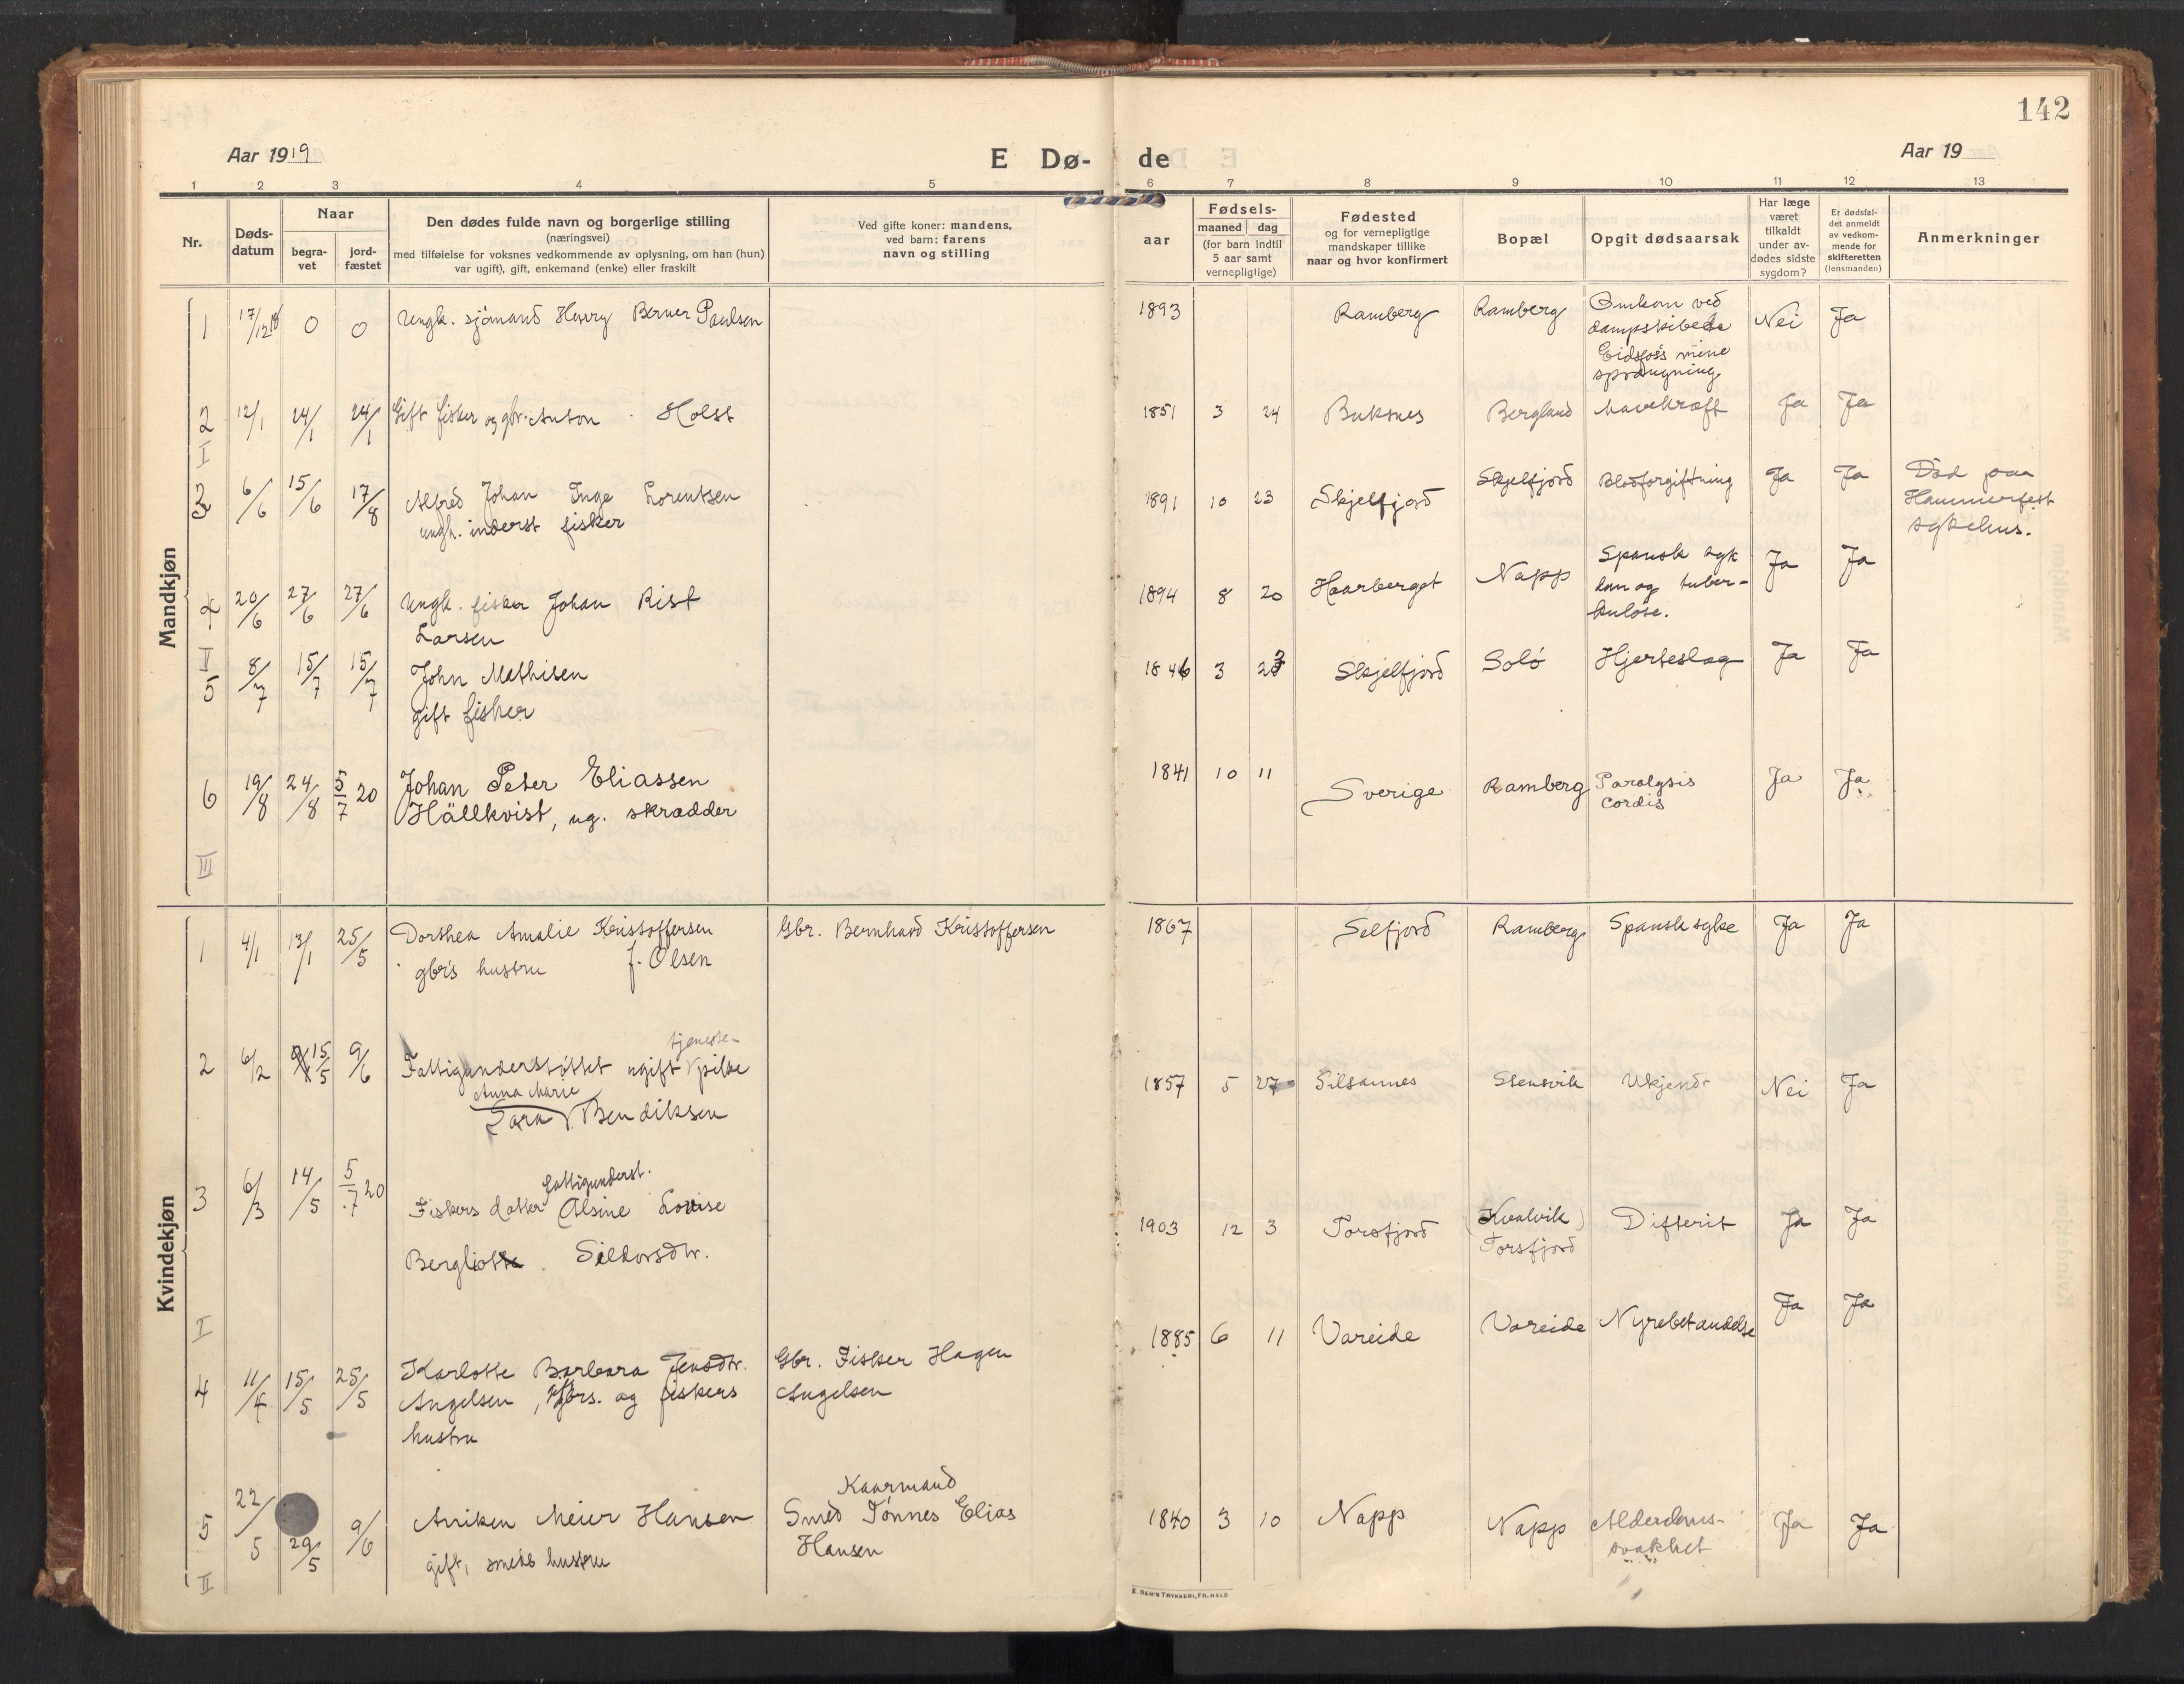 142
Aar 1919
E Dø-
de
Aar 19
1 2 3 4 5 6 7 8 9 10 11 12 13
Nr.
Døds-
datum
Naar
begra-
vet
jord-
fæstet
Den dødes fulde navn og borgerlige stilling
(næringsvei)
med tilføielse for voksnes vedkommende av oplysning, om han (hun)
var ugift), gift, enkemand (enke) eller fraskilt
Ved gifte koner: mandens,
ved barn: farens
navn og stilling
aar
Fødsels-
maaned dag
(for barn indtil
5 aar samt
vernepligtige)
Fødested
og for vernepligtige
mandskaper tillike
naar og hvor konfirmert
Bopæl
Opgit dødsaarsak
Har læge
været
tilkaldt
under av-
dødes sidste
sygdom?
Er dødsfal-
det anmeldt
av vedkom-
mende for
skifteretten
(lensmanden)
Anmerkninger
Mandkjøn
1 17/12 18 0 0 Ungk. sjömand Harry Berner Paulsen 1893 Ramberg Ramberg Omkom ved Nei Ja
dampskibet
Eidsfos's mine
sprængning
2 12/1 24/1 24/1 Gift fisker og gbr. Anton Holst 1851 3 24 Buksnes Bergland Mavekræft Ja Ja
I
3 6/6 15/6 17/8 Alfred Johan Inge Lorentsen 1891 10 23 Skjelfjord Skjelfjord Blodforgiftning Ja Ja Död paa
ungk. inderst fisker
Hammerfest
sykehus.
4 20/6 27/6 27/6 Ungk. fisker Johan Rist 1894 8 20 Haarberget Napp Spansk syk Ja Ja
Larsen
dom og tuber-
kulose.
II
5 8/7 15/7 15/7 John Mathisen 1846 3 23 Skjelfjord Solö Hjerteslag Ja Ja
gift fisker
6 19/8 24/8 5/7 20 Johan Peter Eliassen 1841 10 11 Sverige Ramberg Paralysis Ja Ja
Hällkvist, ug. skrædder
cordis
III
Kvindekjøn
1 4/1 13/1 25/5 Dorthea Amalie Kristoffersen Gbr. Bernhard Kristoffersen 1867 Selfjord Ramberg Spansk syke Ja Ja
gbr's hustru f. Olsen
tjeneste-
2 6/2 15/5 9/6 Fattigunderstøttet ugift pike 1857 5 27 Silsannes Stensvik Ukjendt Nei Ja
Anna Marie
Sara Bendiksen
fattigunderst.
3 6/3 14/5 5/7 20 Fiskers datter Alsine Lovise 1903 12 3 Torsfjord (Kvalvik) Difterit Ja Ja
Torsfjord
Bergliot Sildorsdtr.
I
4 11/4 15/5 25/5 Karlotte Barbara Jensdtr. Gbr. Fisker Hagen 1885 6 11 Vareide Vareide Nyrebetændelse Ja Ja
Angelsen, gbrs. og fiskers Angelsen
hustru
Kaarmand
5 22/5 29/5 9/6 Anniken Meier Hansen Smed Tønnes Elias 1840 3 10 Napp Napp Alderdoms- Ja Ja
gift, smeds hustru Hansen
svakhet
II
E. SEM'S TRYKKERI, FR.HALD